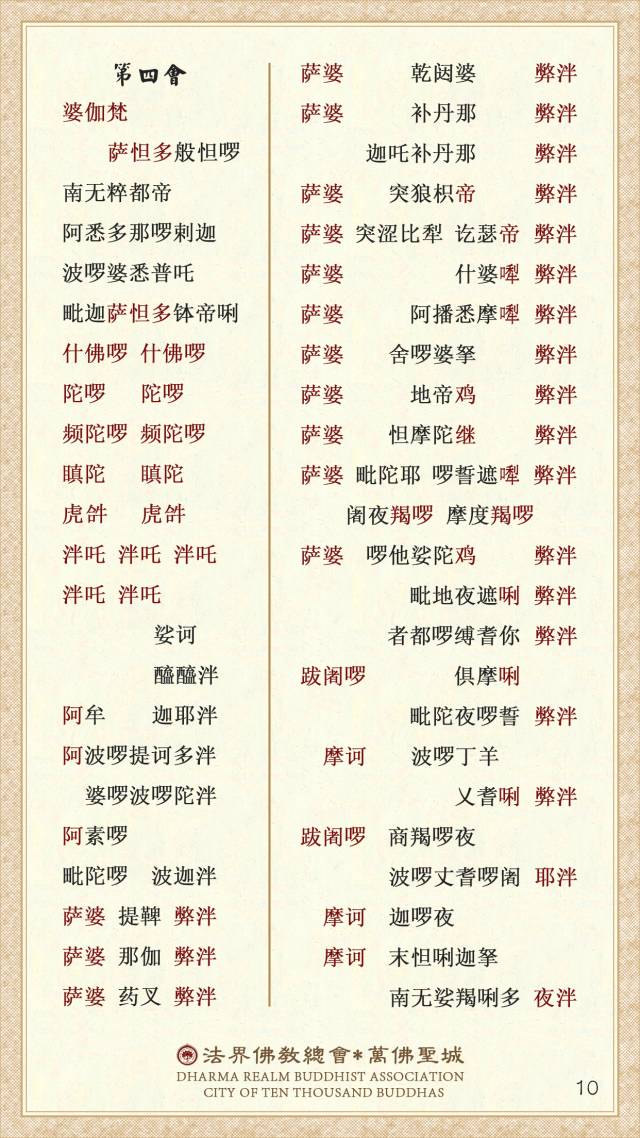 第四會
婆伽梵
萨怛多般怛啰
南无粹都帝
阿悉多那啰剌迦
波啰婆悉普吒
毗迦萨怛多钵帝唎
什佛啰 什佛啰
陀啰 陀啰
频陀啰 频陀啰
瞋陀 瞋陀
虎𤙖 虎𤙖
泮吒 泮吒 泮吒
泮吒 泮吒
娑诃
醯醯泮
阿牟 迦耶泮
阿波啰提诃多泮
婆啰波啰陀泮
阿素啰
毗陀啰 波迦泮
萨婆 提鞞 弊泮
萨婆 那伽 弊泮
萨婆 药叉 弊泮
萨婆 乾闼婆 弊泮
萨婆 补丹那 弊泮
迦吒补丹那 弊泮
萨婆 突狼枳帝 弊泮
萨婆 突涩比犁 讫瑟帝 弊泮
萨婆 什婆唎 弊泮
萨婆 阿播悉摩唎 弊泮
萨婆 舍啰婆拏 弊泮
萨婆 地帝鸡 弊泮
萨婆 怛摩陀继 弊泮
萨婆 毗陀耶 啰誓遮唎 弊泮
阇夜羯啰 摩度羯啰
萨婆 啰他娑陀鸡 弊泮
毗地夜遮唎 弊泮
者都啰缚耆你 弊泮
跋阇啰 俱摩唎
毗陀夜啰誓 弊泮
摩诃 波啰丁羊
乂耆唎 弊泮
跋阇啰 商羯啰夜
波啰丈耆啰阇 耶泮
摩诃 迦啰夜
摩诃 末怛唎迦拏
南无娑羯唎多 夜泮
法界佛教總會*萬佛聖城
DHARMA REALM BUDDHIST ASSOCIATION
CITY OF TEN THOUSAND BUDDHAS
10